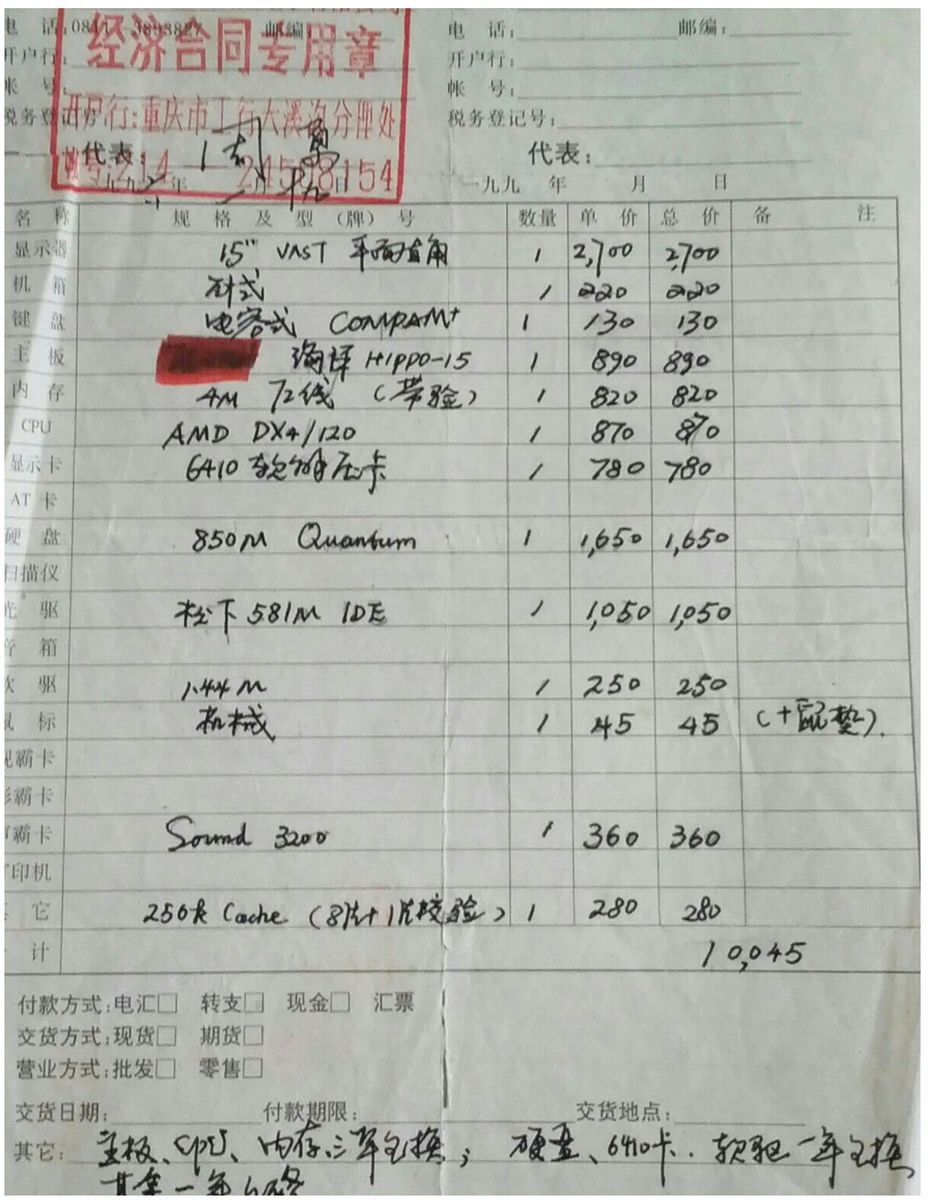 电 话: 0811 3893827 邮编: 电 话: 邮编:
经济合同专用章
开户行: 开户行:
帐 号: 帐 号:
税务登记号: 开户行:重庆市工行大溪沟分理处 税务登记号:
代表: 代表:
214 24508154
一九九六年 月 日 一九九 年 月 日
名 称 规 格 及 型 (牌) 号 数量 单 价 总 价 备 注
显示器 15" VAST 平面直角 1 2,700 2,700
机 箱 卧式 1 220 220
键 盘 电容式 COMPAM+ 1 130 130
主 板 海洋 HIPPO-15 1 890 890
内 存 4M 72线 (带验) 1 820 820
CPU AMD DX4/120 1 870 870
显示卡 6410 软解压卡 1 780 780
AT 卡
硬 盘 850M Quantum 1 1,650 1,650
扫描仪
光 驱 松下 581M IDE 1 1,050 1,050
音 箱
软 驱 1.44M 1 250 250
鼠 标 机械 1 45 45 (+鼠垫)
视霸卡
影霸卡
声霸卡 Sound 3200 1 360 360
打印机
其 它 256K Cache (8片+1片校验) 1 280 280
计 10,045
付款方式:电汇□ 转支□ 现金□ 汇票
交货方式:现货□ 期货□
营业方式:批发□ 零售□
交货日期: 付款期限: 交货地点:
其它: 主板、CPU、内存三年包换; 硬盘、6410卡、软驱一年包换
其余一年